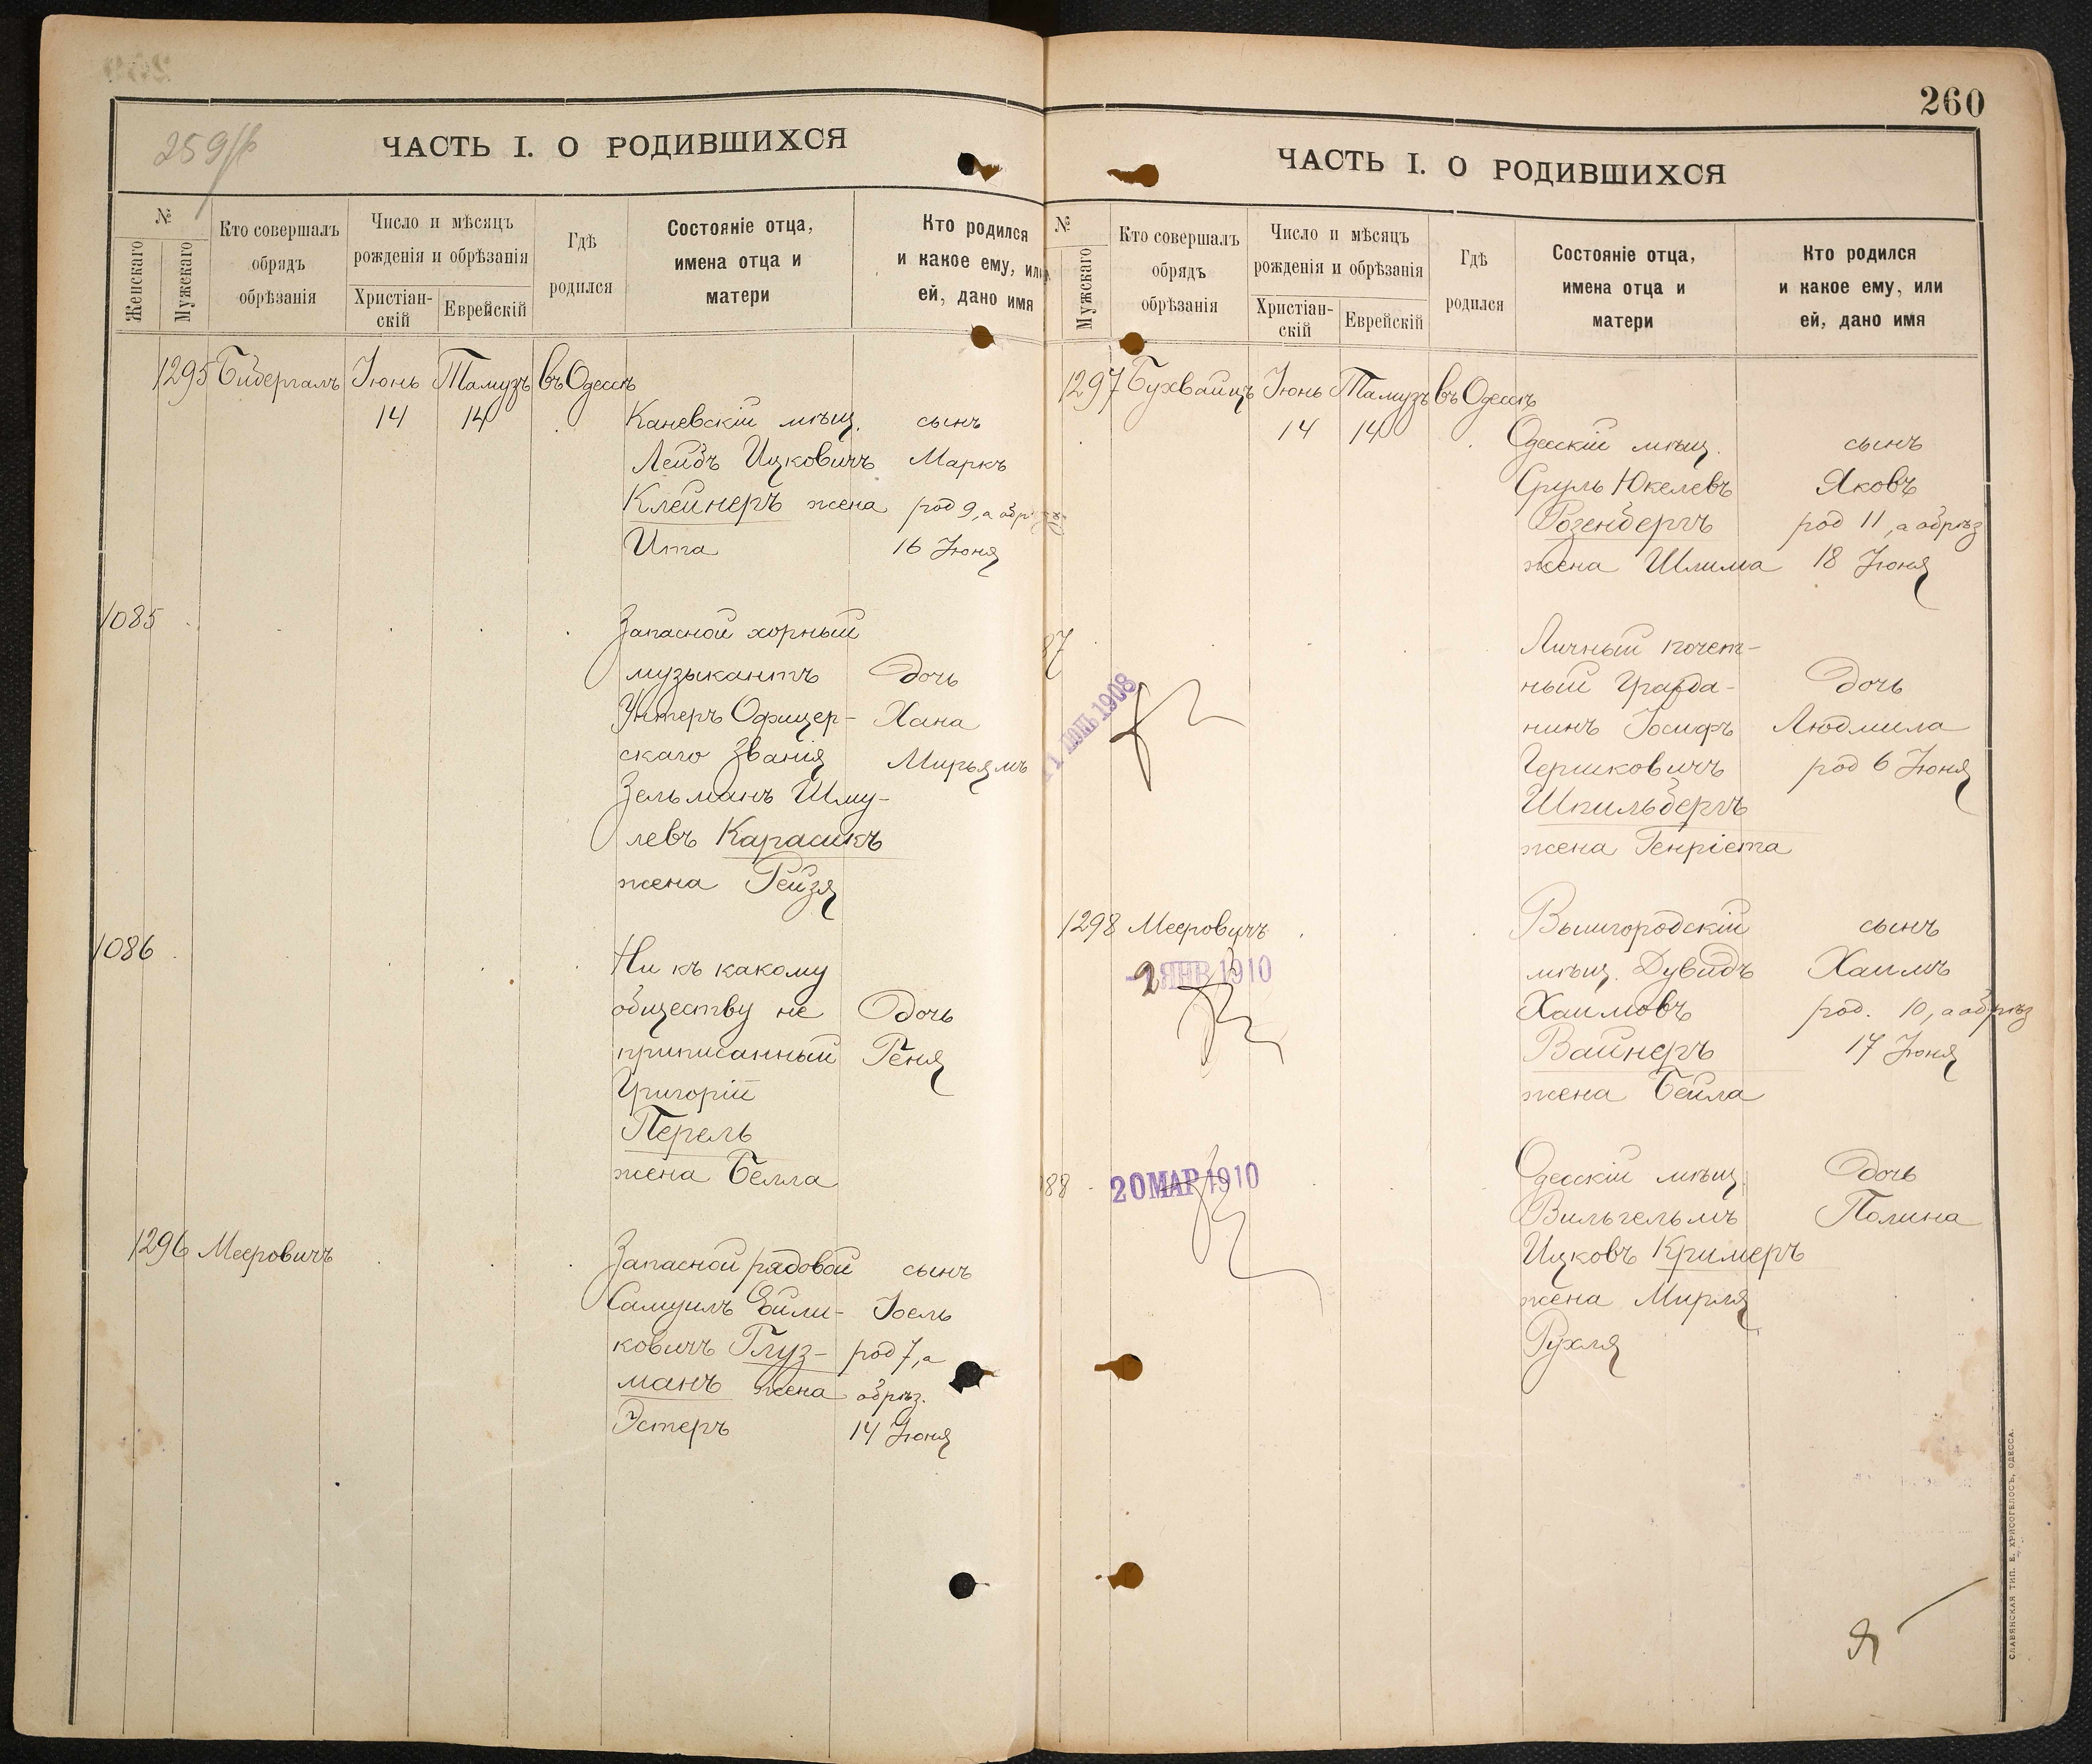 259/б
ЧАСТЬ I. О РОДИВШИХСЯ
№
Женскаго
Мужскаго
Кто совершалъ
обрядъ
обрѣзанія
Число и мѣсяцъ
рожденія и обрѣзанія
Христіан-
скій
Еврейскій
Гдѣ
родился
Состояніе отца,
имена отца и
матери
Кто родился
и какое ему, или
ей, дано имя
1295 Бибергалъ Іюнь Тамузъ въ Одессѣ
14 14 Каневскій мѣщ. сынъ
Лейбъ Ицковичъ Маркъ
Клейнеръ жена род 9, а обр
Ита 16 Іюня
1085 Запасной хорный
музыкантъ дочь
Унтеръ Офицер- Хана
скаго званія Мирьямъ
Зельманъ Шму-
левъ Карасикъ
жена Рейзя
1086 Ни къ какому
обществу не дочь
приписанный Геня
Григорій
Перель
жена Белла
1296 Мееровичъ Запасной рядовой сынъ
Самуилъ Эйли- Іоель
ковичъ Глуз- род 7, а
манъ жена обрѣз.
Эстеръ 14 Іюня
260
ЧАСТЬ I. О РОДИВШИХСЯ
№
Мужскаго
Кто совершалъ
обрядъ
обрѣзанія
Число и мѣсяцъ
рожденія и обрѣзанія
Христіан-
скій
Еврейскій
Гдѣ
родился
Состояніе отца,
имена отца и
матери
Кто родился
и какое ему, или
ей, дано имя
1297 Бухвайцъ Іюнь Тамузъ въ Одессѣ
14 14 Одесскій мѣщ. сынъ
Сруль Юкелевъ Яковъ
Розенбергъ род 11, а обрѣз
жена Шлима 18 Іюня
87 Личный почет-
ный Гражда- дочь
11 ІЮН 1908
нинъ Іосифъ Людмила
Гершковичъ род 6 Іюня
Шпильбергъ
жена Генріета
1298 Мееровичъ Вышгородскій сынъ
2 ЯНВ 1910 мѣщ. Дувидъ Хаимъ
Хаимовъ род. 10, а обрѣз
Вайнеръ 17 Іюня
жена Бейла
88 20 МАР 1910 Одесскій мѣщ. дочь
Вильгельмъ Полина
Ицковъ Кримеръ
жена Мирля
Рухля
СЛАВЯНСКАЯ ТИП. Е. ХРИСОГЕЛОСЪ, ОДЕССА.